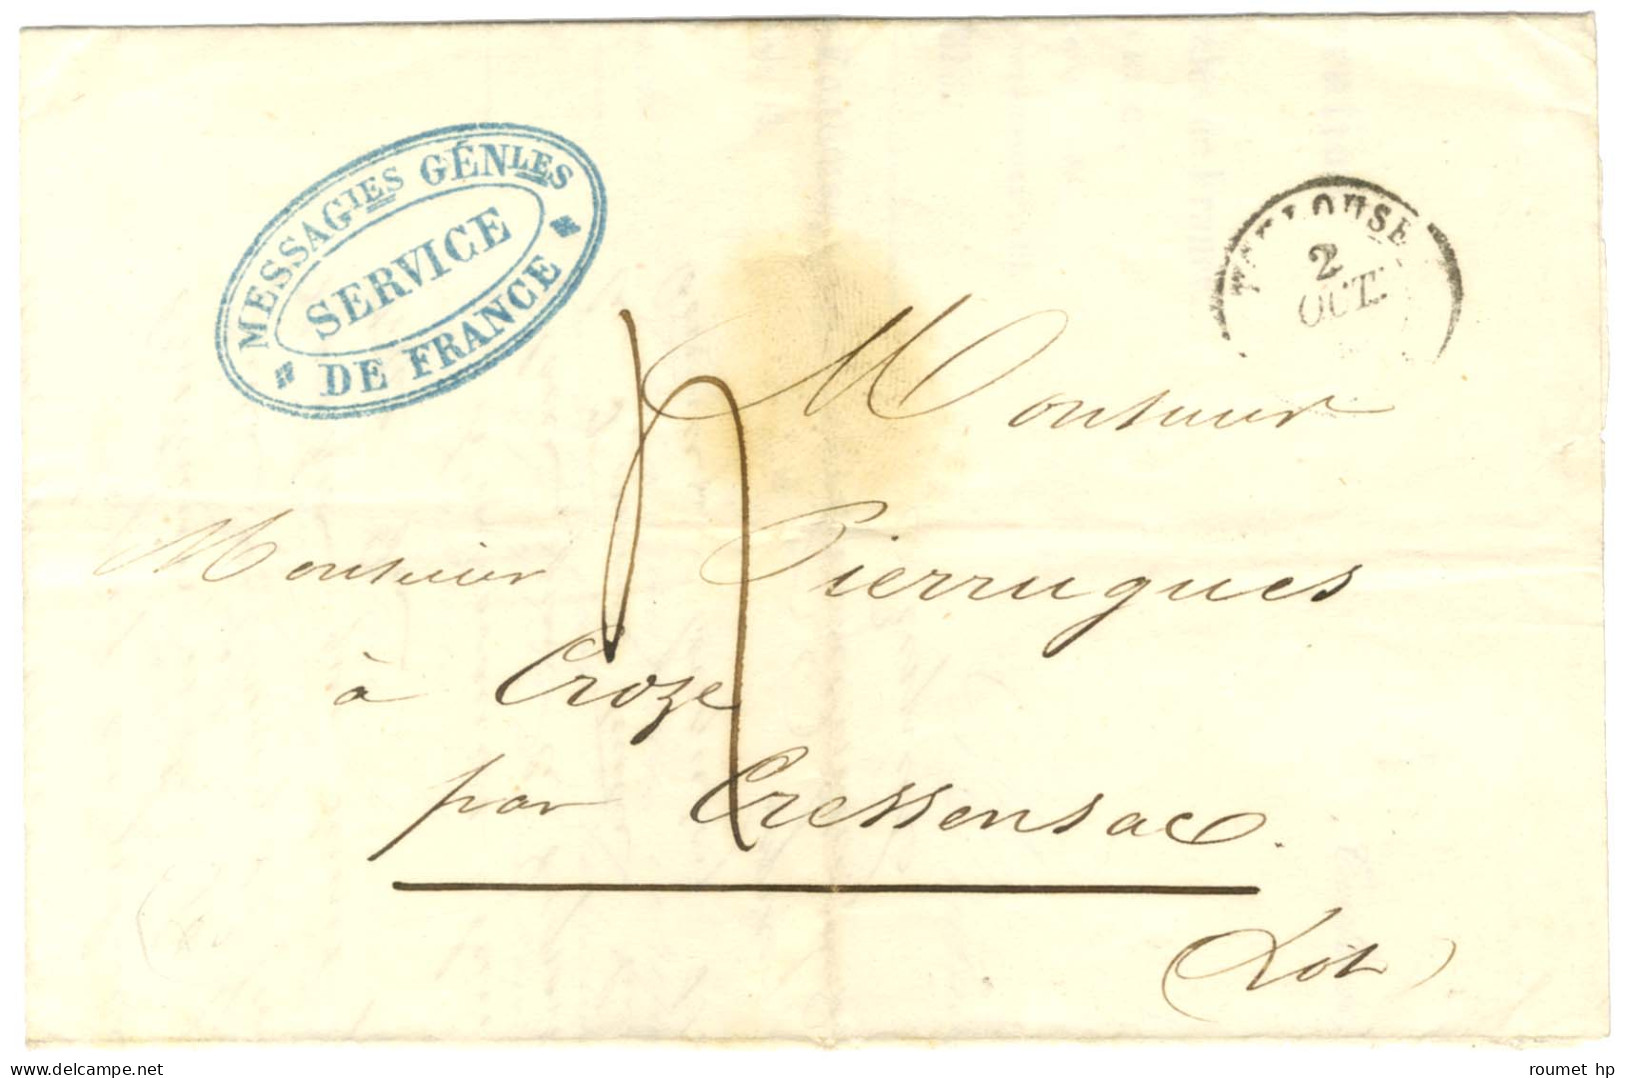 MESSAGIES GÉNLES
SERVICE
DE FRANCE
TOULOUSE
2
OCT.
Monsieur
Monsieur Pierrugues
à Croze
par Cressensac.
(Lot)
© delcampe.net
roumet hp